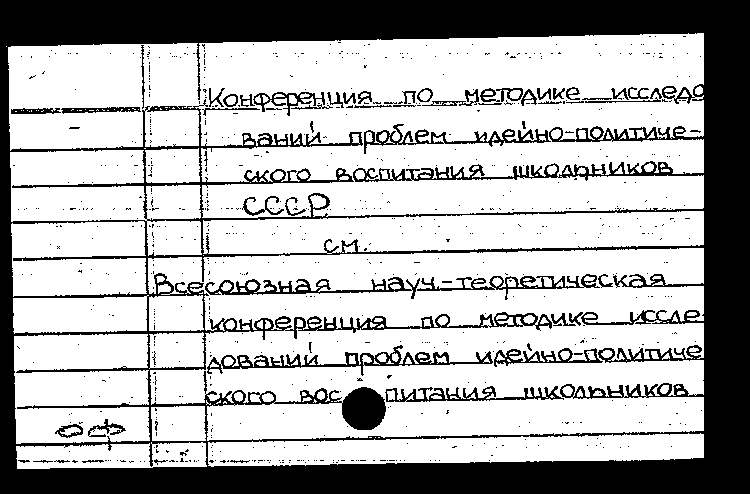 Конференция по методике исследо
ваний проблем идейно-политиче-
ского воспитания школьников
СССР
см.
Всесоюзная науч.-теоретическая
конференция по методике иссле-
дований проблем идейно-политиче
ского воспитания школьников
оф